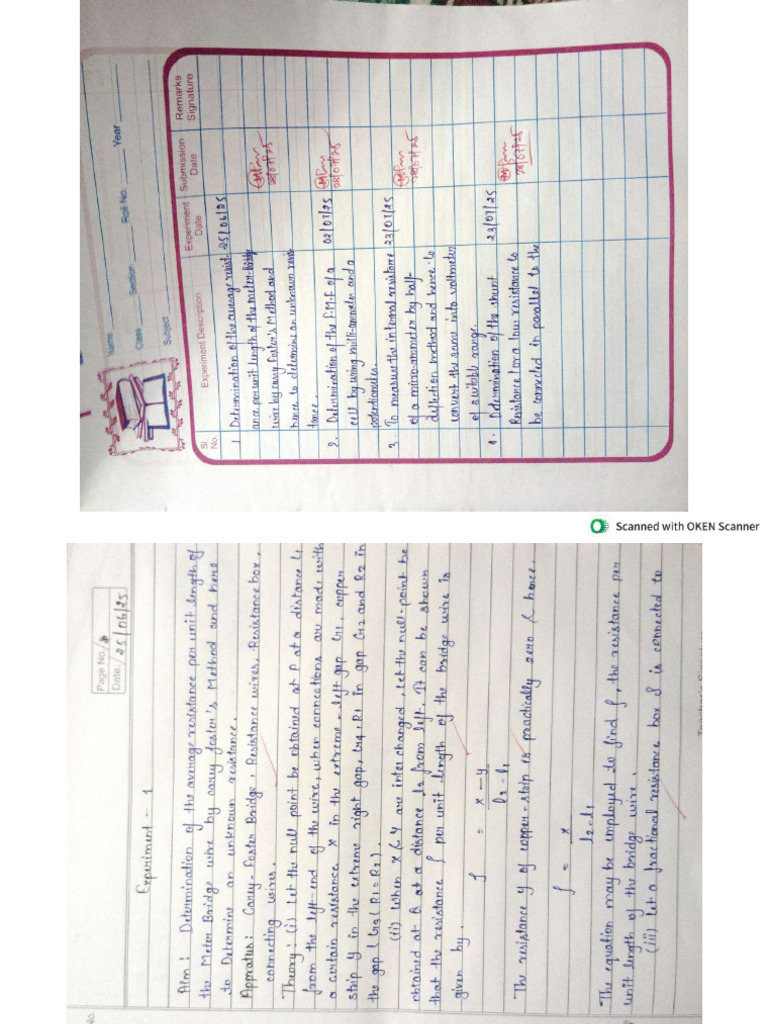 Name
Class
Section
Roll No.
Year
Subject
Sl. No.
Experiment Description
Experiment Date
Submission Date
Remarks Signature
1. Determination of the average resist-
ance per unit length of the meter bridge
wire by carey foster's Method and
hence to determine an unknown resis
tance.
25/06/25
28/07/25
2. Determination of the E.M.F of a
cell by using multi-ammeter and a
potentiometer.
02/07/25
28/07/25
3. To measure the internal resistance
of a micro-ammeter by half-
deflection method and hence to
convert the same into voltmeter
of suitably range.
23/07/25
28/07/25
4. Determination of the shunt
Resistance for a low resistance to
be connected in parallel to the
23/07/25
28/07/25
Scanned with OKEN Scanner
No.
Page No.
Date. 25/06/25
Experiment - 1
Aim: Determination of the average resistance per unit length of
the Meter Bridge wire by carey foster's Method and here
to Determine an unknown resistance.
Appratus: Carey-Foster Bridge, Resistance wires, Resistance box,
connecting wires.
Theory: (i) Let the null point be obtained at P at a distance l1
from the left-end of the wire, when connections are made with
a certain resistance X in the extreme-left gap G1, copper
strip Y in the extreme right gap, G4, R1 in gap G2 and R2 in
the gap G3 (R1=R2).
(ii) When X & Y are inter changed, let the null-point be
obtained at Q at a distance l2 from left. It can be shown
that the resistance ρ per unit length of the bridge wire is
given by.
ρ = x-y / l2-l1
The resistance Y of copper-strip is practically zero & hence.
ρ = x / l2-l1
"The equation may be employed to find ρ, the resistance per
unit length of the bridge wire.
(iii) Let a fractional resistance box S is connected to